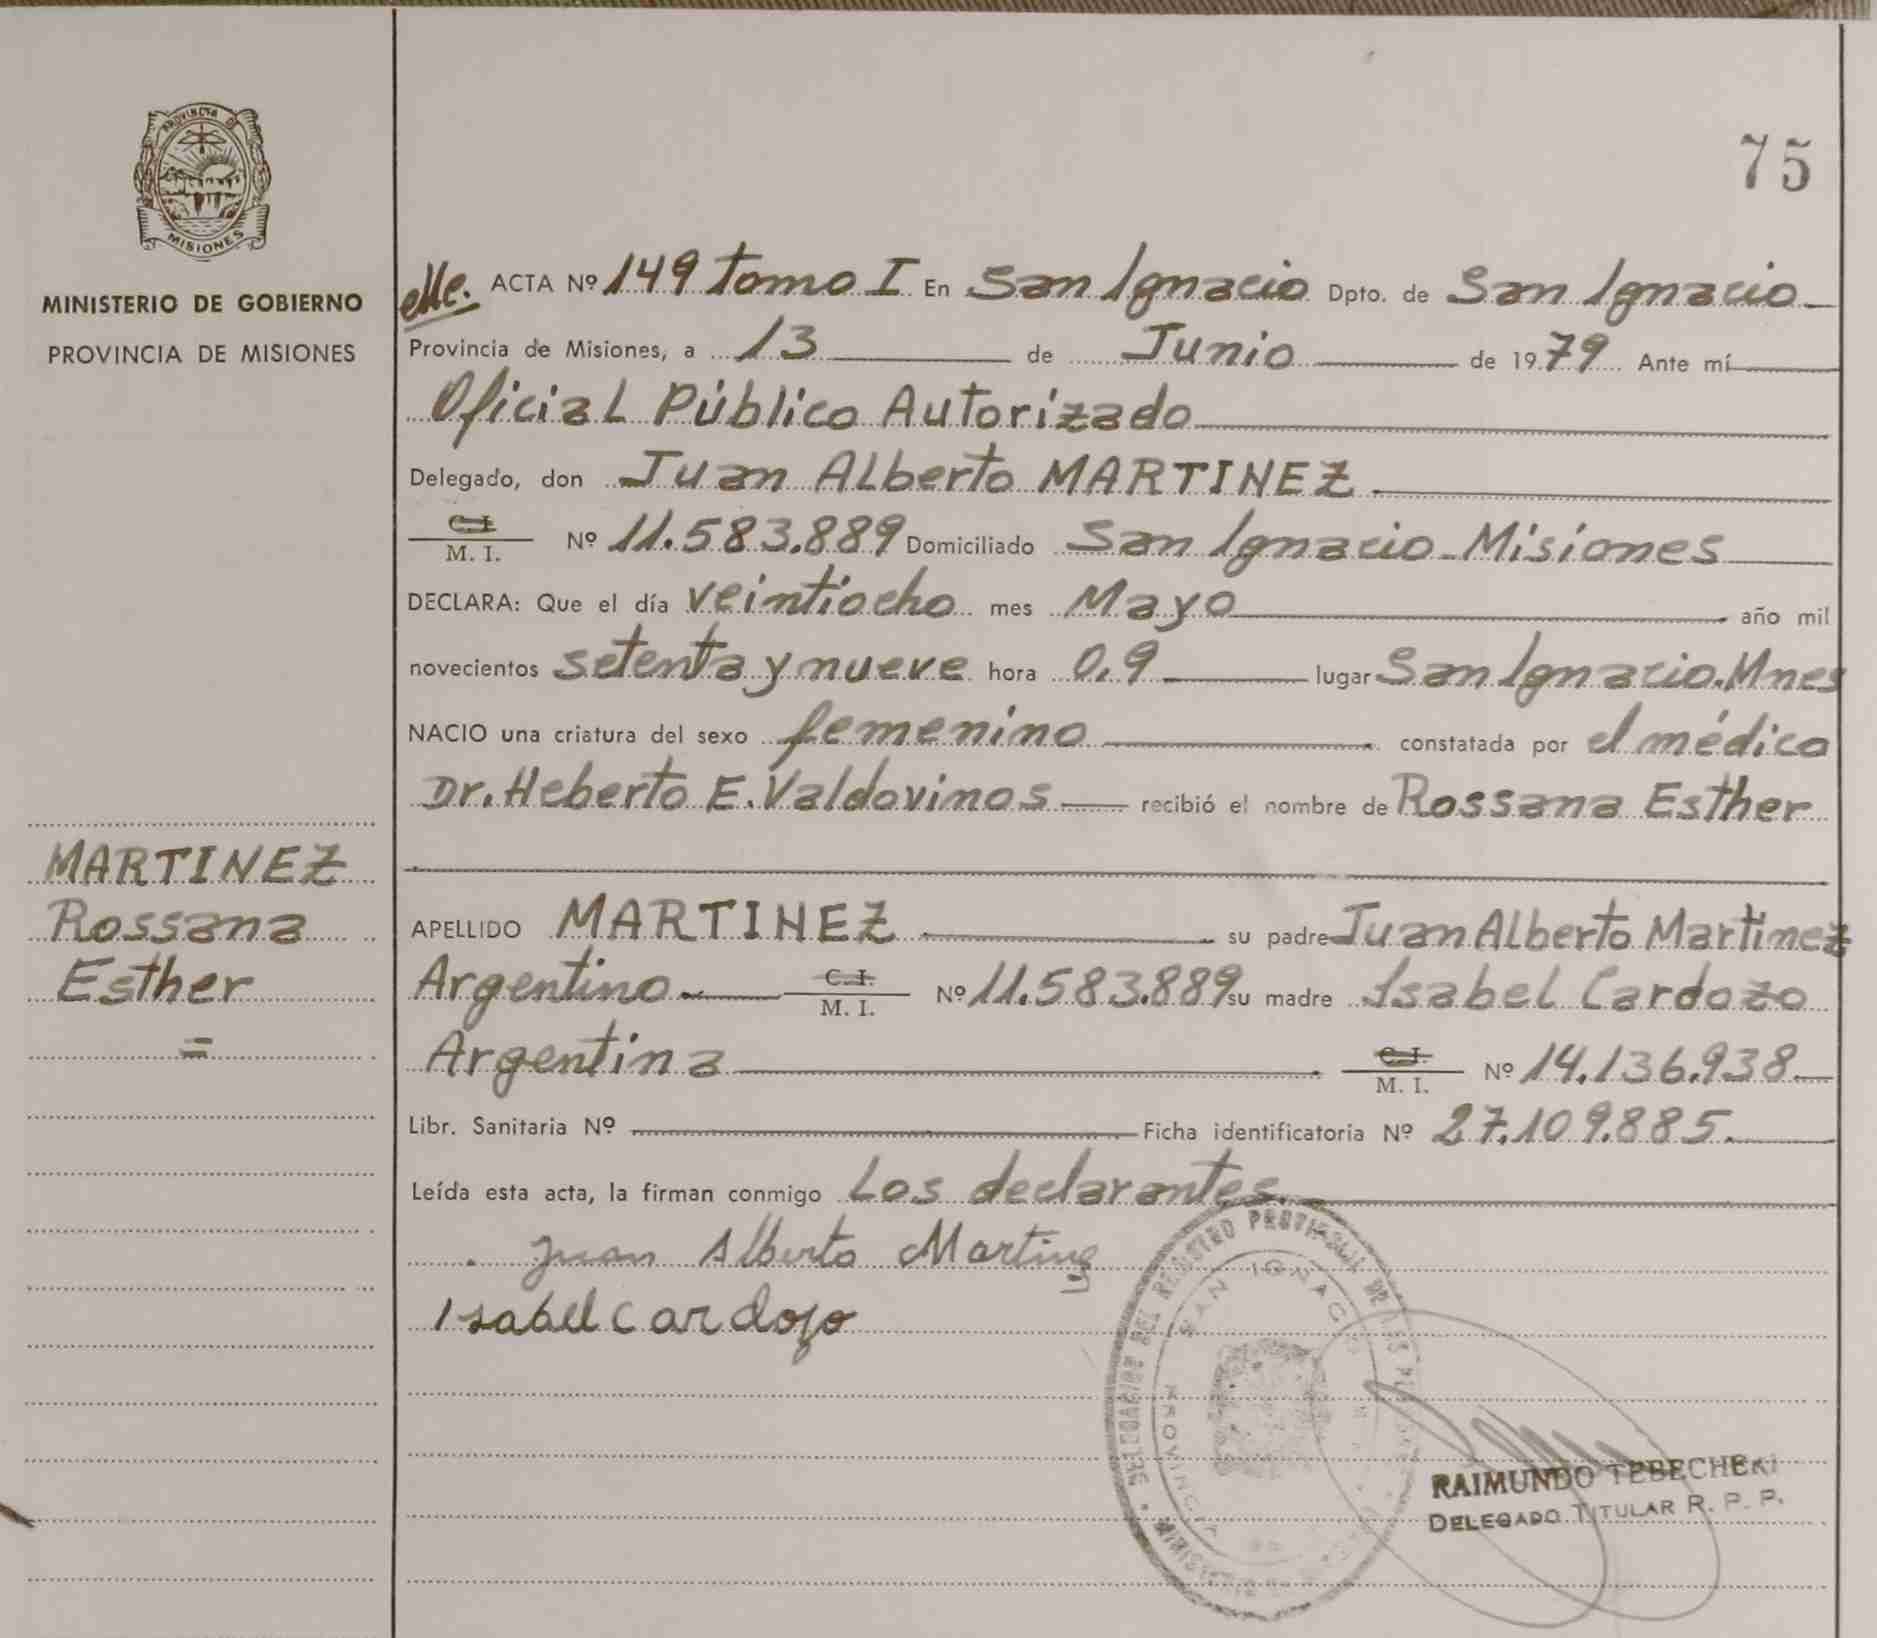 PROVINCIA DE
MISIONES
MINISTERIO DE GOBIERNO
PROVINCIA DE MISIONES
MARTINEZ
Rossana
Esther
=
75
ACTA Nº 149 tomo I En San Ignacio Dpto. de San Ignacio
Provincia de Misiones, a 13 de Junio de 1979 Ante mí
Oficial Público Autorizado
Delegado, don Juan Alberto MARTINEZ
C.I. M. I. Nº 11.583.889 Domiciliado San Ignacio - Misiones
DECLARA: Que el día veintiocho mes Mayo año mil
novecientos setenta y nueve hora 0,9 lugar San Ignacio. Mnes
NACIO una criatura del sexo femenino constatada por el médico
Dr. Heberto E. Valdovinos recibió el nombre de Rossana Esther
APELLIDO MARTINEZ su padre Juan Alberto Martinez
Argentino C.I. M. I. Nº 11.583.889 su madre Isabel Cardozo
Argentina C.I. M. I. Nº 14.136.938
Libr. Sanitaria Nº Ficha identificatoria Nº 27.109.885.
Leída esta acta, la firman conmigo Los declarantes.
Juan Alberto Martinez
Isabel Cardozo
DELEGACION DEL REGISTRO PROVINCIAL DE LAS PERSONAS
SAN IGNACIO
PROVINCIA
MISIONES
RAIMUNDO TEBECHERI
DELEGADO TITULAR R. P. P.